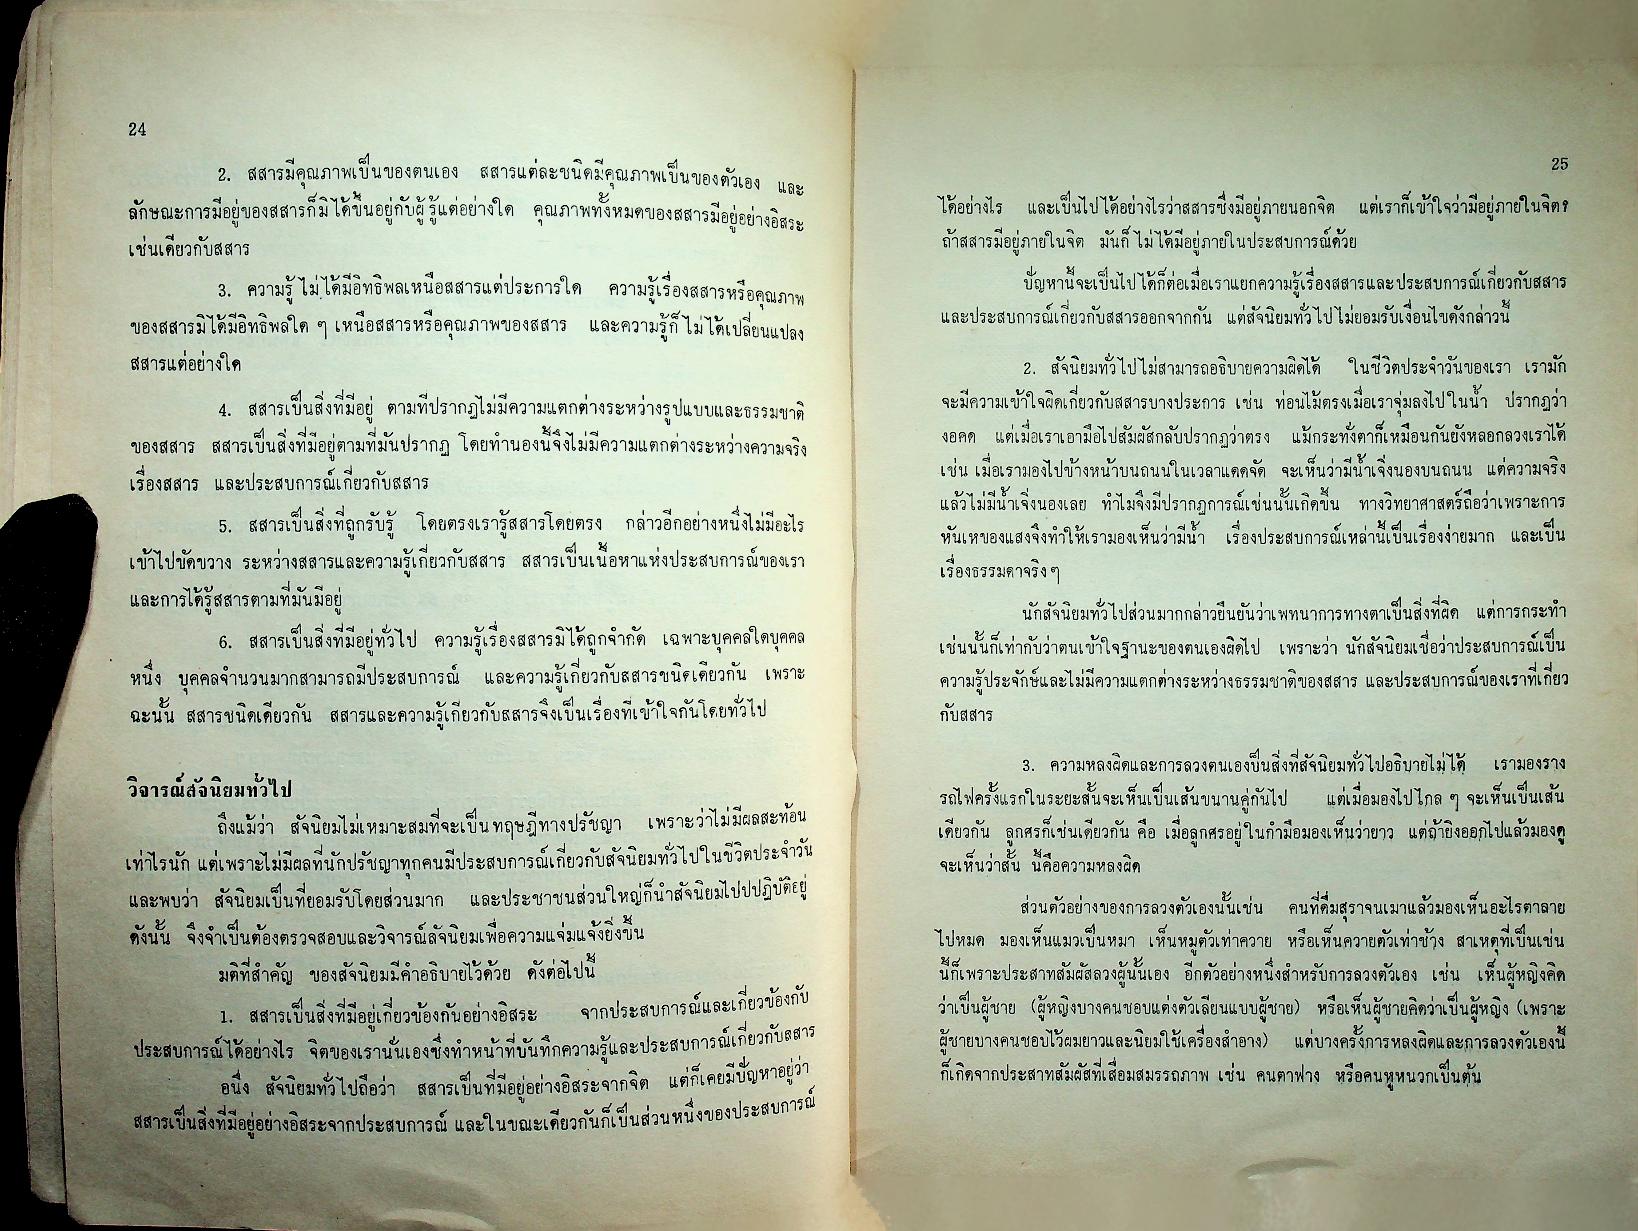 24
2. สสารมีคุณภาพเป็นของตนเอง สสารแต่ละชนิดมีคุณภาพเป็นของตัวเอง และ
ลักษณะการมีอยู่ของสสารก็มิได้ขึ้นอยู่กับผู้รู้แต่อย่างใด คุณภาพทั้งหมดของสสารมีอยู่อย่างอิสระ
เช่นเดียวกับสสาร
3. ความรู้ไม่ได้มีอิทธิพลเหนือสสารแต่ประการใด ความรู้เรื่องสสารหรือคุณภาพ
ของสสารมิได้มีอิทธิพลใด ๆ เหนือสสารหรือคุณภาพของสสาร และความรู้ก็ไม่ได้เปลี่ยนแปลง
สสารแต่อย่างใด
4. สสารเป็นสิ่งที่มีอยู่ ตามที่ปรากฏไม่มีความแตกต่างระหว่างรูปแบบและธรรมชาติ
ของสสาร สสารเป็นสิ่งที่มีอยู่ตามที่มันปรากฏ โดยทำนองนี้จึงไม่มีความแตกต่างระหว่างความจริง
เรื่องสสาร และประสบการณ์เกี่ยวกับสสาร
5. สสารเป็นสิ่งที่ถูกรับรู้ โดยตรงเรารู้สสารโดยตรง กล่าวอีกอย่างหนึ่งไม่มีอะไร
เข้าไปขัดขวาง ระหว่างสสารและความรู้เกี่ยวกับสสาร สสารเป็นเนื้อหาแห่งประสบการณ์ของเรา
และการได้รู้สสารตามที่มันมีอยู่
6. สสารเป็นสิ่งที่มีอยู่ทั่วไป ความรู้เรื่องสสารมิได้ถูกจำกัด เฉพาะบุคคลใดบุคคล
หนึ่ง บุคคลจำนวนมากสามารถมีประสบการณ์ และความรู้เกี่ยวกับสสารชนิดเดียวกัน เพราะ
ฉะนั้น สสารชนิดเดียวกัน สสารและความรู้เกี่ยวกับสสารจึงเป็นเรื่องที่เข้าใจกันโดยทั่วไป
วิจารณ์สัจนิยมทั่วไป
ถึงแม้ว่า สัจนิยมไม่เหมาะสมที่จะเป็นทฤษฎีทางปรัชญา เพราะว่าไม่มีผลสะท้อน
เท่าไรนัก แต่เพราะไม่มีผลที่นักปรัชญาทุกคนมีประสบการณ์เกี่ยวกับสัจนิยมทั่วไปในชีวิตประจำวัน
และพบว่า สัจนิยมเป็นที่ยอมรับโดยส่วนมาก และประชาชนส่วนใหญ่ก็นำสัจนิยมไปปฏิบัติอยู่
ดังนั้น จึงจำเป็นต้องตรวจสอบและวิจารณ์สัจนิยมเพื่อความแจ่มแจ้งยิ่งขึ้น
มติที่สำคัญ ของสัจนิยมมีคำอธิบายไว้ด้วย ดังต่อไปนี้
1. สสารเป็นสิ่งที่มีอยู่เกี่ยวข้องกันอย่างอิสระ จากประสบการณ์และเกี่ยวข้องกับ
ประสบการณ์ได้อย่างไร จิตของเรานั่นเองซึ่งทำหน้าที่บันทึกความรู้และประสบการณ์เกี่ยวกับสสาร
อนึ่ง สัจนิยมทั่วไปถือว่า สสารเป็นที่มีอยู่อย่างอิสระจากจิต แต่ก็เคยมีปัญหาอยู่ว่า
สสารเป็นสิ่งที่มีอยู่อย่างอิสระจากประสบการณ์ และในขณะเดียวกันก็เป็นส่วนหนึ่งของประสบการณ์
25
ได้อย่างไร และเป็นไปได้อย่างไรว่าสสารซึ่งมีอยู่ภายนอกจิต แต่เราก็เข้าใจว่ามีอยู่ภายในจิต?
ถ้าสสารมีอยู่ภายในจิต มันก็ไม่ได้มีอยู่ภายในประสบการณ์ด้วย
ปัญหานี้จะเป็นไปได้ก็ต่อเมื่อเราแยกความรู้เรื่องสสารและประสบการณ์เกี่ยวกับสสาร
และประสบการณ์เกี่ยวกับสสารออกจากกัน แต่สัจนิยมทั่วไปไม่ยอมรับเงื่อนไขดังกล่าวนี้
2. สัจนิยมทั่วไปไม่สามารถอธิบายความผิดได้ ในชีวิตประจำวันของเรา เรามัก
จะมีความเข้าใจผิดเกี่ยวกับสสารบางประการ เช่น ท่อนไม้ตรงเมื่อเราจุ่มลงไปในน้ำ ปรากฏว่า
งอคด แต่เมื่อเราเอามือไปสัมผัสกลับปรากฏว่าตรง แม้กระทั่งตาก็เหมือนกันยังหลอกลวงเราได้
เช่น เมื่อเรามองไปข้างหน้าบนถนนในเวลาแดดจัด จะเห็นว่ามีน้ำเจิ่งนองบนถนน แต่ความจริง
แล้วไม่มีน้ำเจิ่งนองเลย ทำไมจึงมีปรากฏการณ์เช่นนั้นเกิดขึ้น ทางวิทยาศาสตร์ถือว่าเพราะการ
หันเหของแสงจึงทำให้เรามองเห็นว่ามีน้ำ เรื่องประสบการณ์เหล่านี้เป็นเรื่องง่ายมาก และเป็น
เรื่องธรรมดาจริงๆ
นักสัจนิยมทั่วไปส่วนมากกล่าวยืนยันว่าเพทนาการทางตาเป็นสิ่งที่ผิด แต่การกระทำ
เช่นนั้นก็เท่ากับว่าตนเข้าใจฐานะของตนเองผิดไป เพราะว่า นักสัจนิยมเชื่อว่าประสบการณ์เป็น
ความรู้ประจักษ์และไม่มีความแตกต่างระหว่างธรรมชาติของสสาร และประสบการณ์ของเราที่เกี่ยว
กับสสาร
3. ความหลงผิดและการลวงตนเองเป็นสิ่งที่สัจนิยมทั่วไปอธิบายไม่ได้ เรามองราง
รถไฟครั้งแรกในระยะสั้นจะเห็นเป็นเส้นขนานคู่กันไป แต่เมื่อมองไปไกล ๆ จะเห็นเป็นเส้น
เดียวกัน ลูกศรก็เช่นเดียวกัน คือ เมื่อลูกศรอยู่ในกำมือมองเห็นว่ายาว แต่ถ้ายิงออกไปแล้วมองดู
จะเห็นว่าสั้น นี้คือความหลงผิด
ส่วนตัวอย่างของการลวงตัวเองนั้นเช่น คนที่ดื่มสุราจนเมาแล้วมองเห็นอะไรตาลาย
ไปหมด มองเห็นแมวเป็นหมา เห็นหมูตัวเท่าควาย หรือเห็นควายตัวเท่าช้าง สาเหตุที่เป็นเช่น
นี้ก็เพราะประสาทสัมผัสลวงผู้นั้นเอง อีกตัวอย่างหนึ่งสำหรับการลวงตัวเอง เช่น เห็นผู้หญิงคิด
ว่าเป็นผู้ชาย (ผู้หญิงบางคนชอบแต่งตัวเลียนแบบผู้ชาย) หรือเห็นผู้ชายคิดว่าเป็นผู้หญิง (เพราะ
ผู้ชายบางคนชอบไว้ผมยาวและนิยมใช้เครื่องสำอาง) แต่บางครั้งการหลงผิดและการลวงตัวเองนี้
ก็เกิดจากประสาทสัมผัสที่เสื่อมสมรรถภาพ เช่น คนตาฟาง หรือคนหูหนวกเป็นต้น